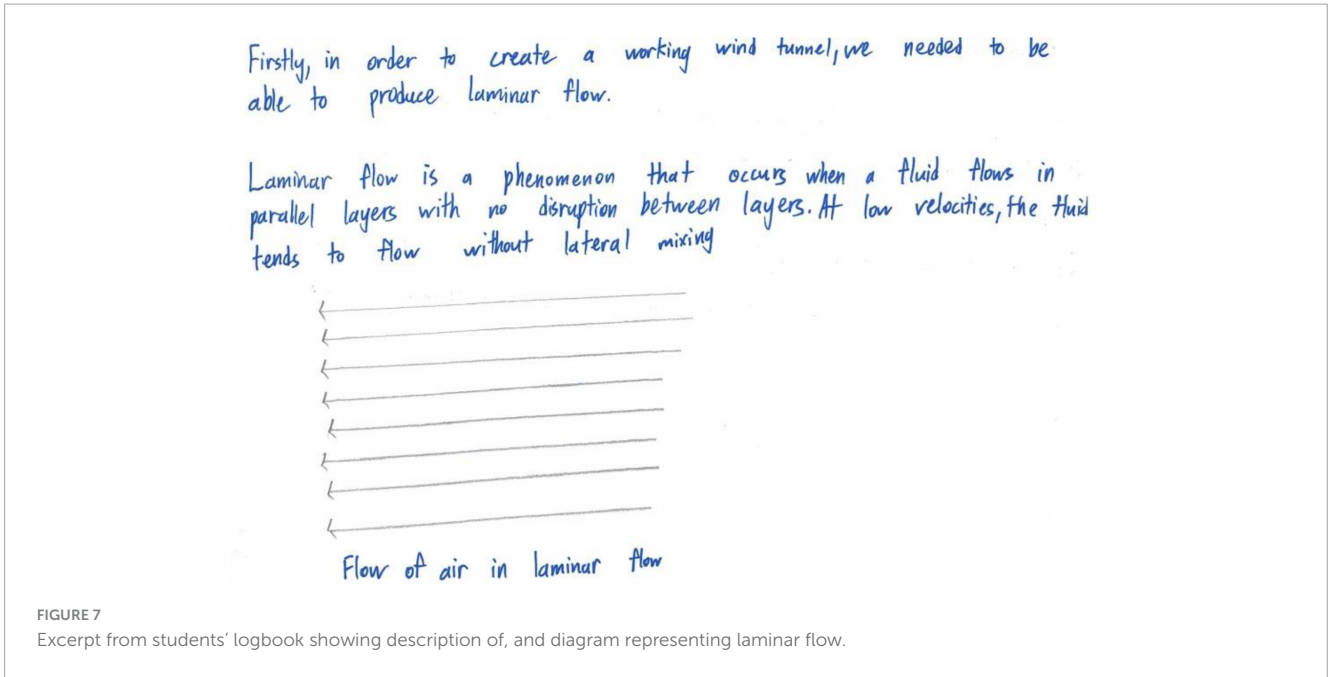 Firstly, in order to create a working wind tunnel, we needed to be
able to produce laminar flow.
Laminar flow is a phenomenon that occurs when a fluid flows in
parallel layers with no disruption between layers. At low velocities, the fluid
tends to flow without lateral mixing
Flow of air in laminar flow
FIGURE 7
Excerpt from students' logbook showing description of, and diagram representing laminar flow.